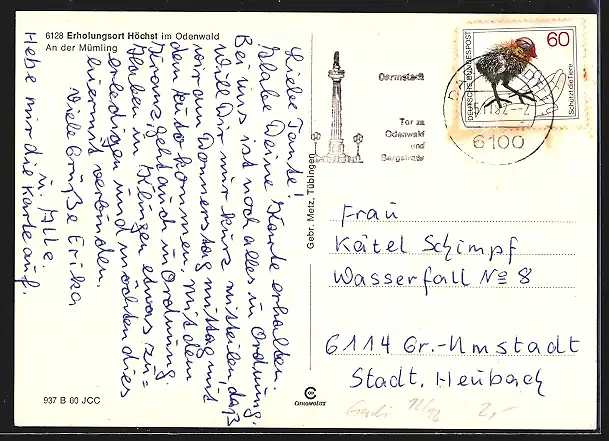 6128 Erholungsort Höchst im Odenwald
An der Mümling
Liebe Tante!
Habe Deine Karte erhalten.
Bei uns ist noch alles in Ordnung.
Will Dir nur kurz mitteilen, daß
wir am Donnerstag mittag mit
dem Auto kommen. Mit dem
Kranz geht auch in Ordnung.
Haben in Klingen etwas zu =
erledigen und möchten dies
hiermit verbinden.
Viele Grüße Erika
u. Alle.
Hebe mir die Karte auf.
937 B 60 JCC
Gebr. Metz, Tübingen
Darmstadt
Tor zu
Odenwald
und
Bergstraße
DEUTSCHE BUNDESPOST
60
Schützt die Tiere
6100
Frau
Kätel Schimpf
Wasserfall No 8
6114 Gr.-Umstadt
Stadt. Heubach
2,-